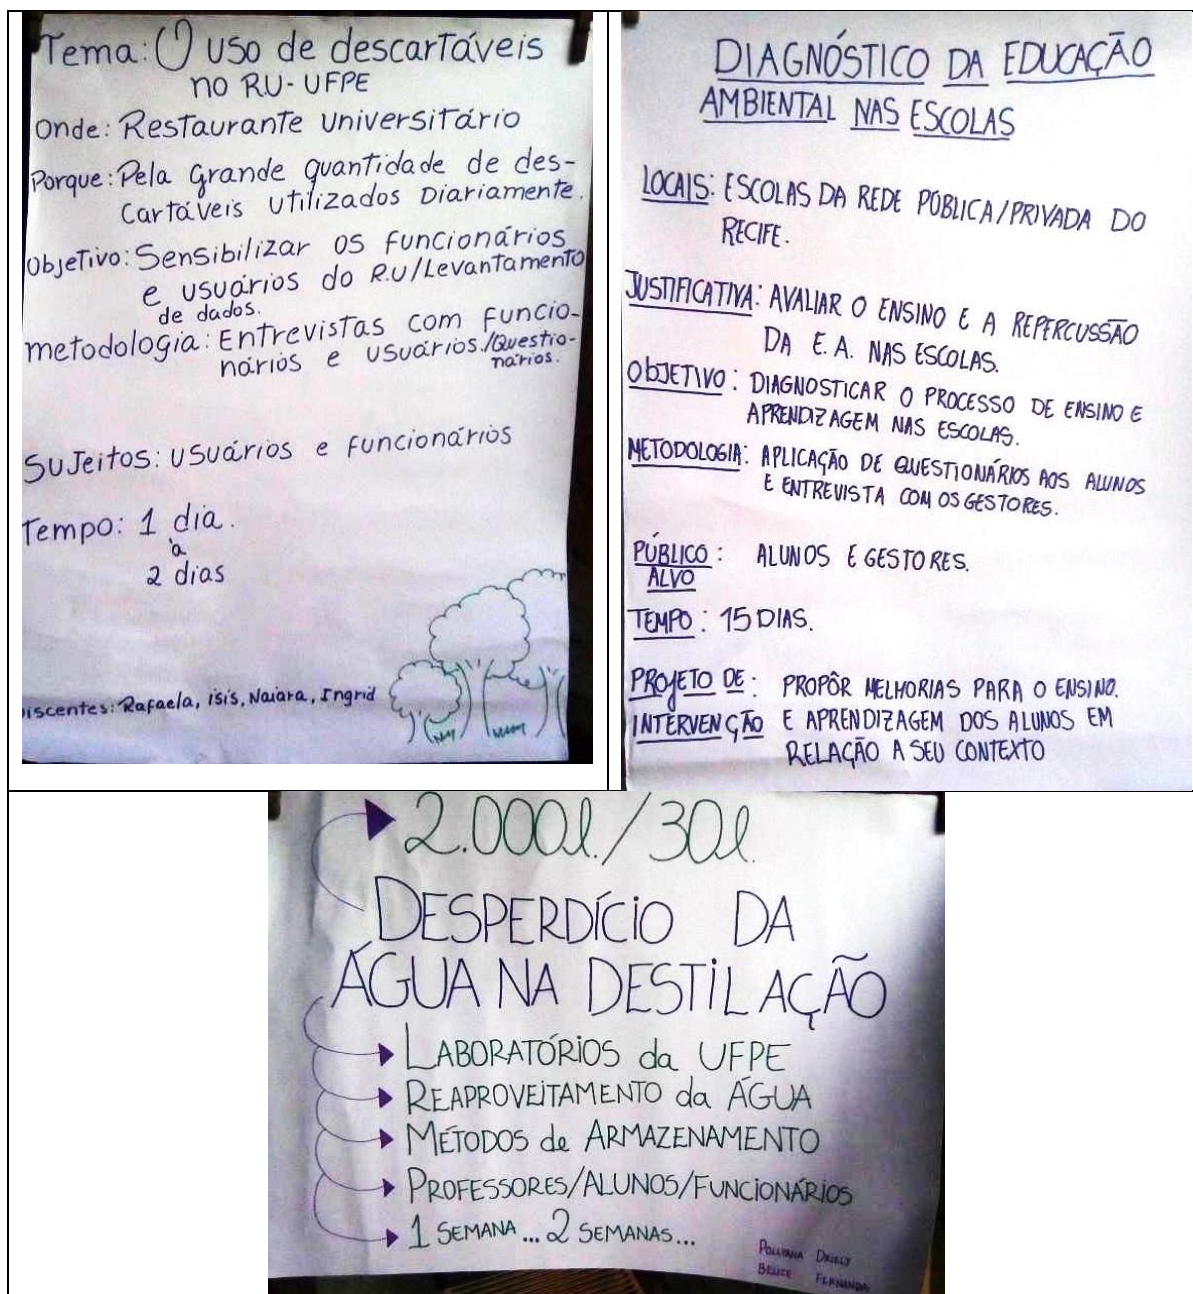 Tema: O uso de descartáveis
no RU-UFPE
Onde: Restaurante universitário
Porque: Pela Grande quantidade de des-
cartáveis utilizados Diariamente.
Objetivo: Sensibilizar os funcionários
e usuários do R.U/Levantamento
de dados.
metodologia: Entrevistas com funcio-
nários e usuários./Questio-
nários.
Sujeitos: usuários e funcionários
Tempo: 1 dia.
à
2 dias
iscentes: Rafaela, isis, Naiara, Ingrid
DIAGNÓSTICO DA EDUCAÇÃO
AMBIENTAL NAS ESCOLAS
LOCAIS: ESCOLAS DA REDE PÚBLICA/PRIVADA DO
RECIFE.
JUSTIFICATIVA: AVALIAR O ENSINO E A REPERCUSSÃO
DA E.A. NAS ESCOLAS.
OBJETIVO: DIAGNOSTICAR O PROCESSO DE ENSINO E
APRENDIZAGEM NAS ESCOLAS.
METODOLOGIA: APLICAÇÃO DE QUESTIONÁRIOS AOS ALUNOS
E ENTREVISTA COM OS GESTORES.
PÚBLICO: ALUNOS E GESTORES.
ALVO
TEMPO: 15 DIAS.
PROJETO DE: PROPÔR MELHORIAS PARA O ENSINO.
INTERVENÇÃO E APRENDIZAGEM DOS ALUNOS EM
RELAÇÃO A SEU CONTEXTO
2.000l./30l.
DESPERDÍCIO DA
ÁGUA NA DESTILAÇÃO
LABORATÓRIOS da UFPE
REAPROVEITAMENTO da ÁGUA
MÉTODOS de ARMAZENAMENTO
PROFESSORES/ALUNOS/FUNCIONÁRIOS
1 SEMANA... 2 SEMANAS...
POLLYANA
FERNANDA